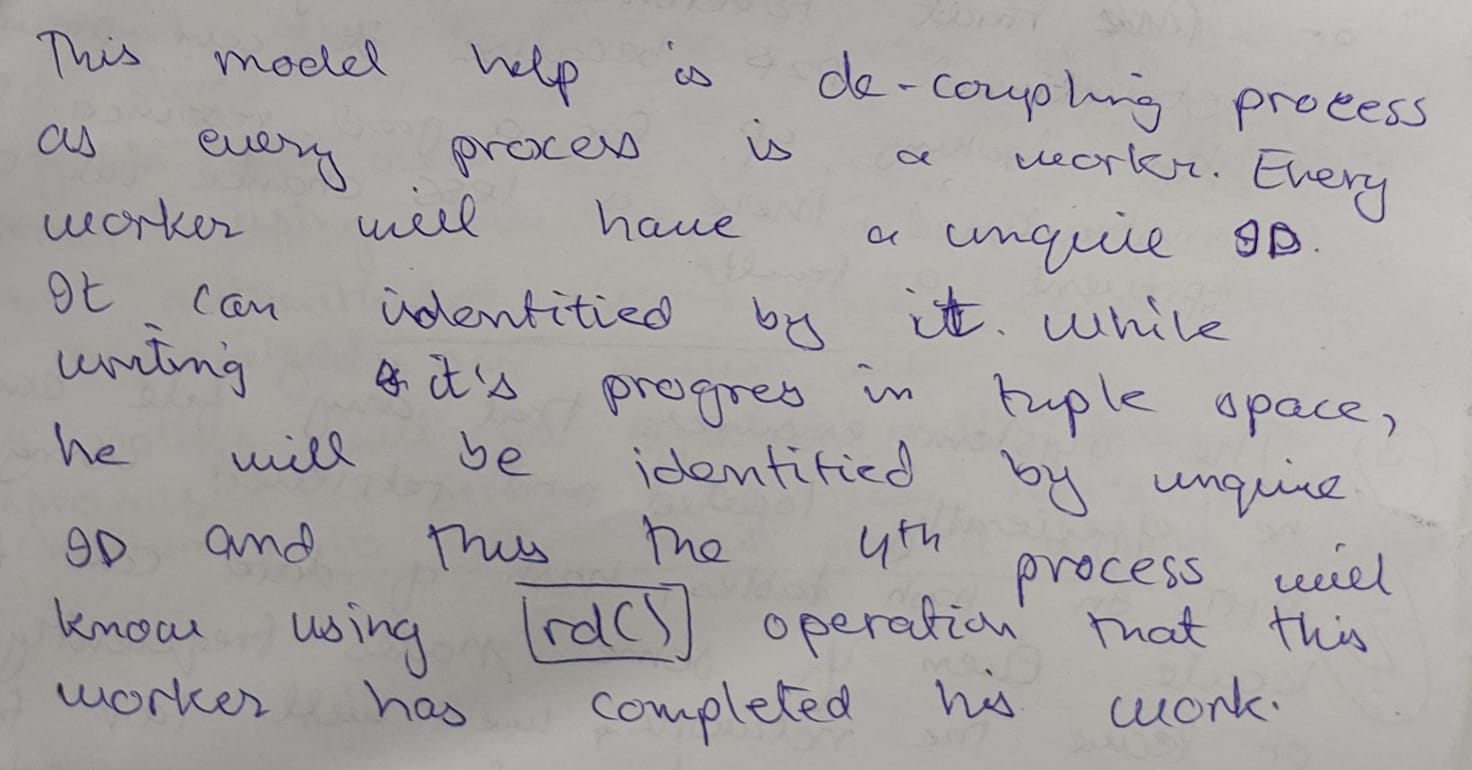 This model help is de-coupling process
as every process is a workr. Every
worker will have a unquie ID.
It can identitied by it. While
writing it's progres in tuple space,
he will be identitied by unquie
ID and thus the 4th process will
know using rd() operation that this
worker has completed his work.